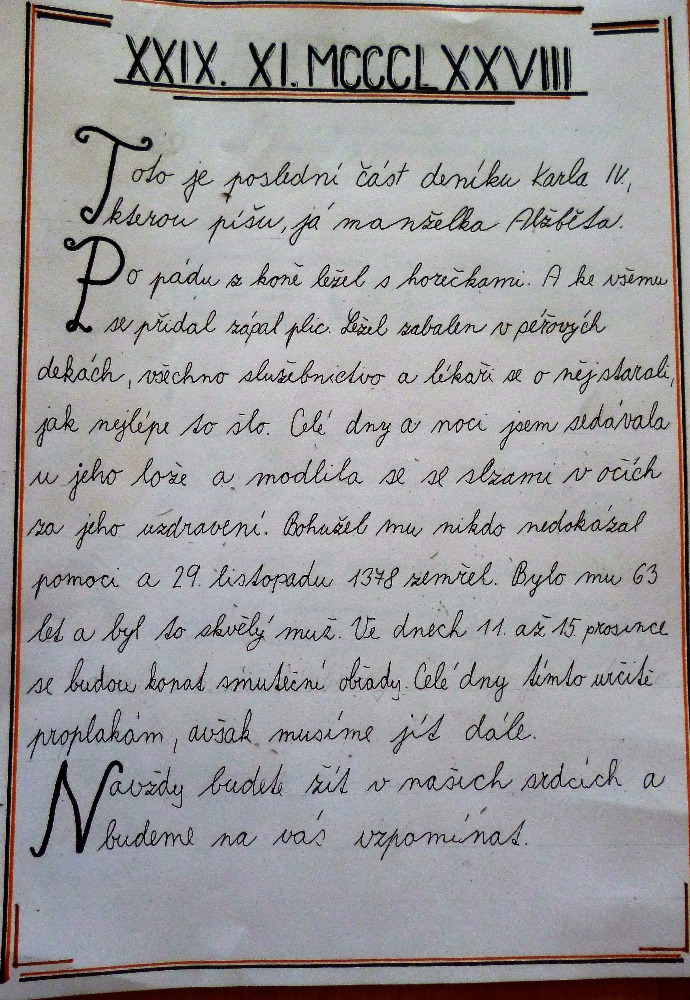 XXIX. XI. MCCCLXXVIII
Toto je poslední část deníku Karla IV,
kterou píšu, já manželka Alžběta.
Po pádu z koně ležel s horečkami. A ke všemu
se přidal zápal plic. Ležel zabalen v péřových
dekách, všechno služebnictvo a lékaři se o něj starali,
jak nejlépe to šlo. Celé dny a noci jsem sedávala
u jeho lože a modlila se se slzami v očích
za jeho uzdravení. Bohužel mu nikdo nedokázal
pomoci a 29. listopadu 1378 zemřel. Bylo mu 63
let a byl to skvělý muž. Ve dnech 11. až 15. prosince
se budou konat smuteční obřady. Celé dny tímto určitě
proplakám, avšak musíme jít dále.
Navždy budete žít v našich srdcích a
budeme na vás vzpomínat.